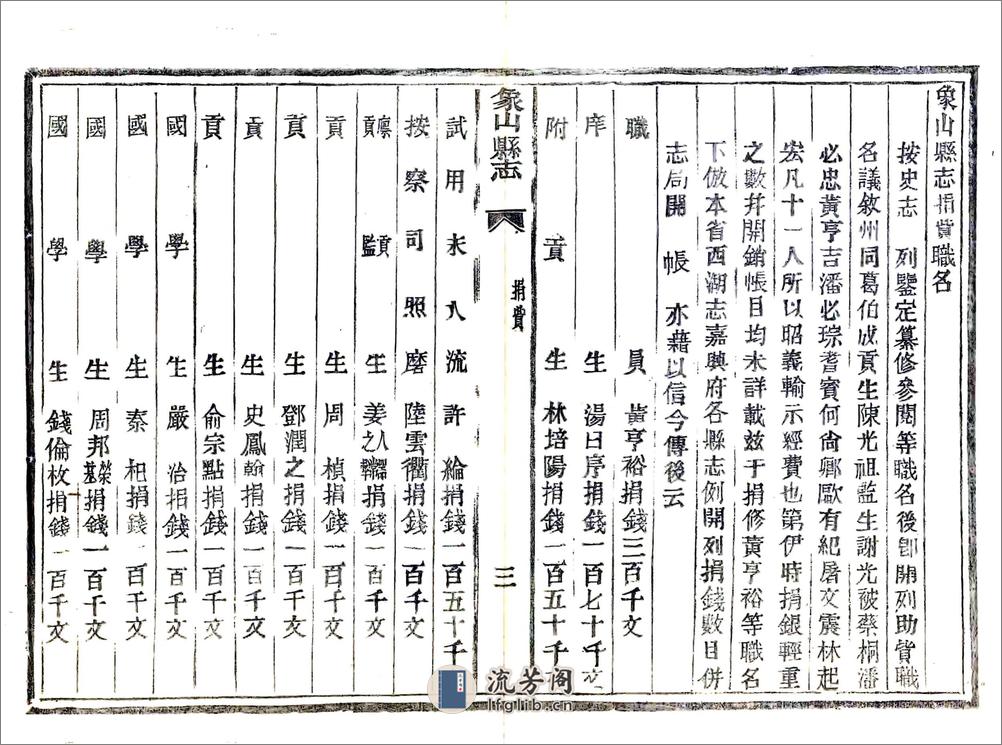 象山縣志捐貲職名
按史志 列鑒定纂修參閱等職名後卽開列助貲職
名議敘州同葛伯成貢生陳光祖監生謝光被蔡桐潘
必忠黃亨吉潘必琮耆賓何尙卿歐有紀屠文震林起
宏凡十一人所以昭義輸示經費也第伊時捐銀輕重
之數幷開銷帳目均未詳載兹于捐修黃亨裕等職名
下倣本省西湖志嘉興府各縣志例開列捐錢數目併
志局開 帳 亦藉以信今傳後云
職員黃亨裕捐錢三百千文
庠生湯日序捐錢一百七十千文
附貢生林培陽捐錢一百五十千
象山縣志 捐貲 三
試用未入流許綸捐錢一百五十千
按察司照磨陸雲衢捐錢一百千文
廩貢貢監生姜人之捐錢一百千文
貢生周楨捐錢一百千文
貢生鄧潤之捐錢一百千文
貢生史鳳翰捐錢一百千文
貢生俞宗點捐錢一百千文
國學生嚴治捐錢一百千文
國學生秦杞捐錢一百千文
國學生周邦榮基捐錢一百千文
國學生錢倫枚捐錢一百千文
流芳阁
lfglib.cn